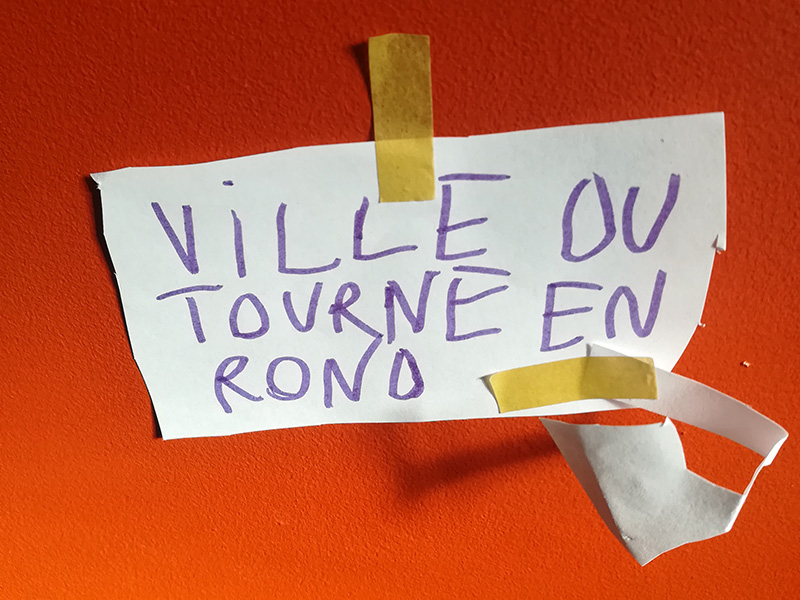 ViLLE DU
TOURNE EN
ROND